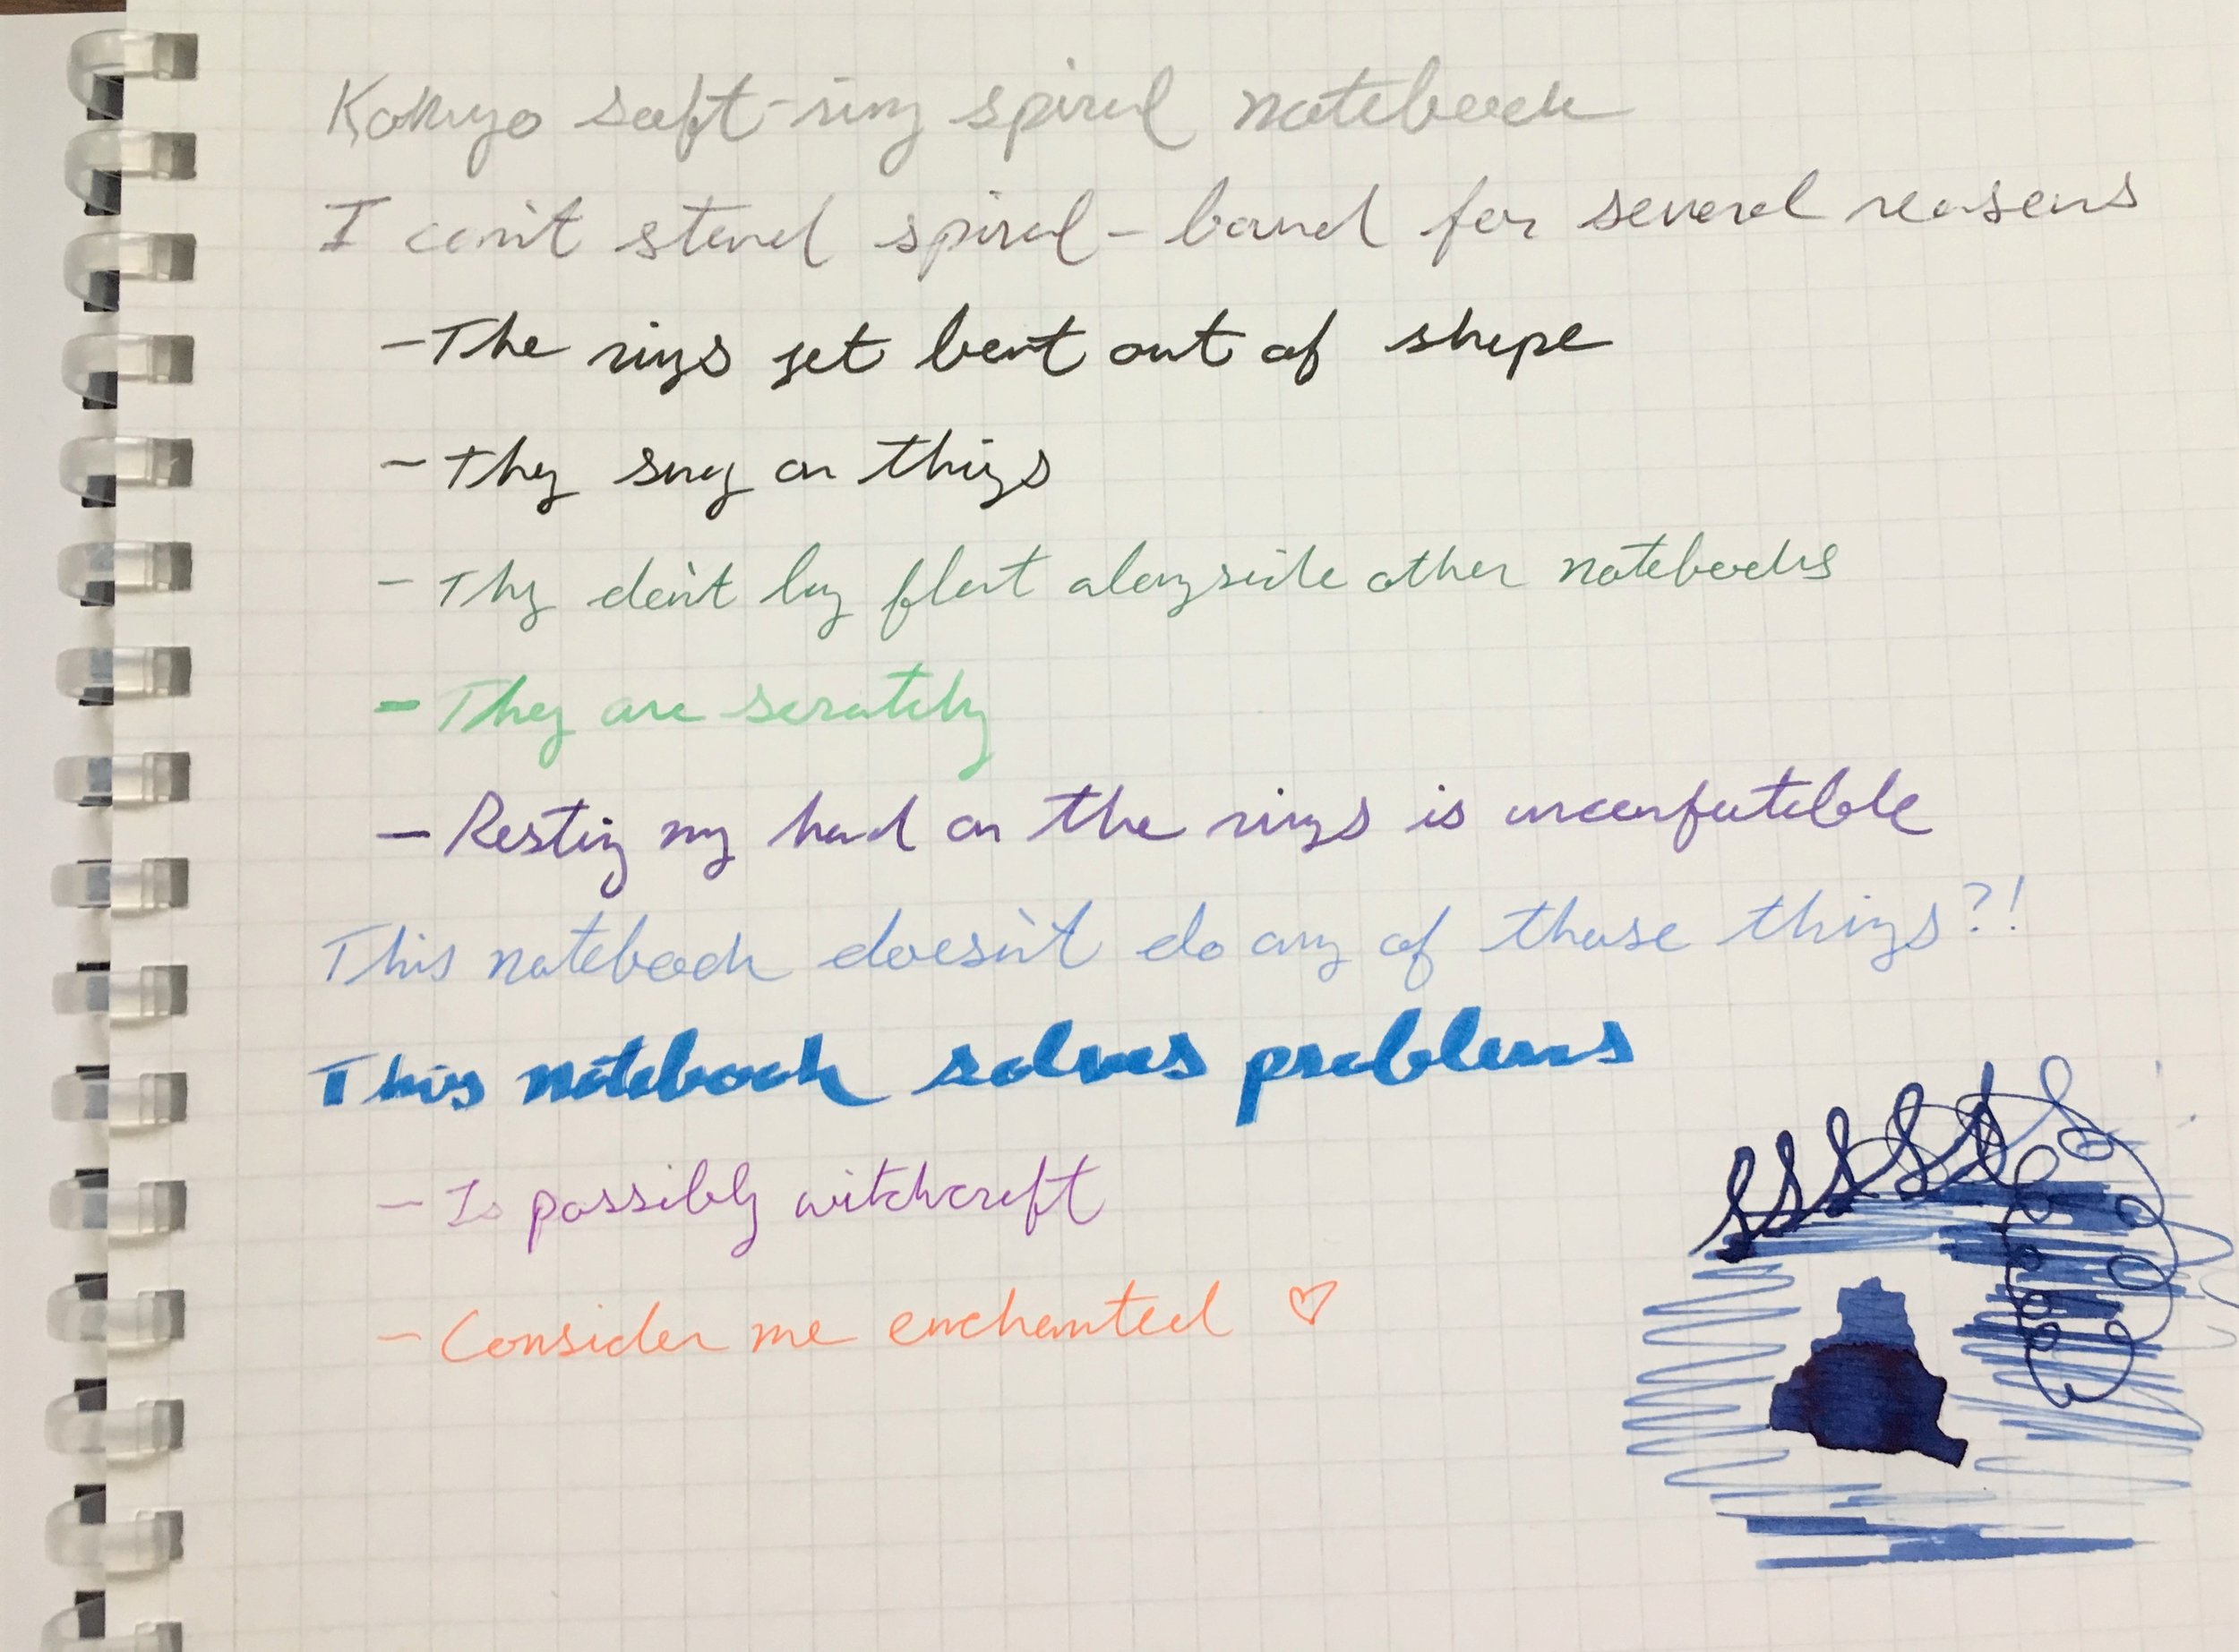 Kokuyo soft-ring spiral notebook
I can't stand spiral-bound for several reasons
- The rings get bent out of shape
- They snag on things
- They don't lay flat alongside other notebooks
- They are scratchy
- Resting my hand on the rings is uncomfortable
This notebook doesn't do any of those things?!
This notebook solves problems
- Is possibly witchcraft
- Consider me enchanted ♡